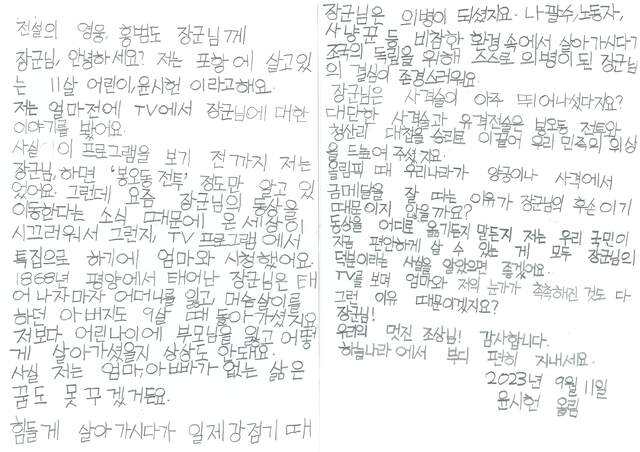 전설의 영웅, 홍범도 장군님께
장군님, 안녕하세요? 저는 포항에 살고있
는 11살 어린이, 윤시헌 이라고해요.
저는 얼마전에 TV에서 장군님에 대한
이야기를 봤어요.
사실 이 프로그램을 보기 전까지 저는
장군님, 하면 '봉오동 전투' 정도만 알고 있
었어요. 그런데 요즘 장군님의 동상을
이동한다는 소식 때문에 온 세상이
시끄러워서 그런지, TV 프로그램에서
특집으로 하기에 엄마와 시청했어요.
1868년 평양에서 태어난 장군님은 태
어나자마자 어머니를 잃고, 머슴살이를
하던 아버지도 9살 때 돌아가셨지요
저보다 어린나이에 부모님을 잃고 어떻
게 살아가셨을지 상상도 안돼요.
사실 저는 엄마, 아빠가 없는 삶은
꿈도 못 꾸겠거든요.
힘들게 살아가시다가 일제강점기 때
장군님은 의병이 되셨지요. 나팔수, 노동자,
사냥꾼 등 비참한 환경 속에서 살아가시다가
조국의 독립을 위해 스스로 의병이 된 장군님
의 결심이 존경스러워요.
장군님은 사격술이 아주 뛰어나셨다지요?
대단한 사격술과 유격전술은 봉오동 전투와
청산리 대첩을 승리로 이끌어 우리 민족의 위상
을 드높여 주셨지요.
올림픽 때 우리나라가 양궁이나 사격에서
금메달을 잘 따는 이유가 장군님의 후손이기
때문이지 않을까요?
동상을 어디로 옮기든지 말든지 저는 우리 국민이
지금 편안하게 살 수 있는 게 모두 장군님의
덕분이라는 사실을 알았으면 좋겠어요.
TV를 보며 엄마와 저의 눈가가 촉촉해진 것도 다
그런 이유 때문이겠지요?
장군님!
우리의 멋진 조상님! 감사합니다.
하늘나라에서 부디 편히 지내세요.
2023년 9월 11일
윤시헌 올림